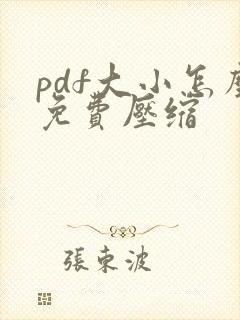 pdf大小怎麼
免費壓縮
張東波